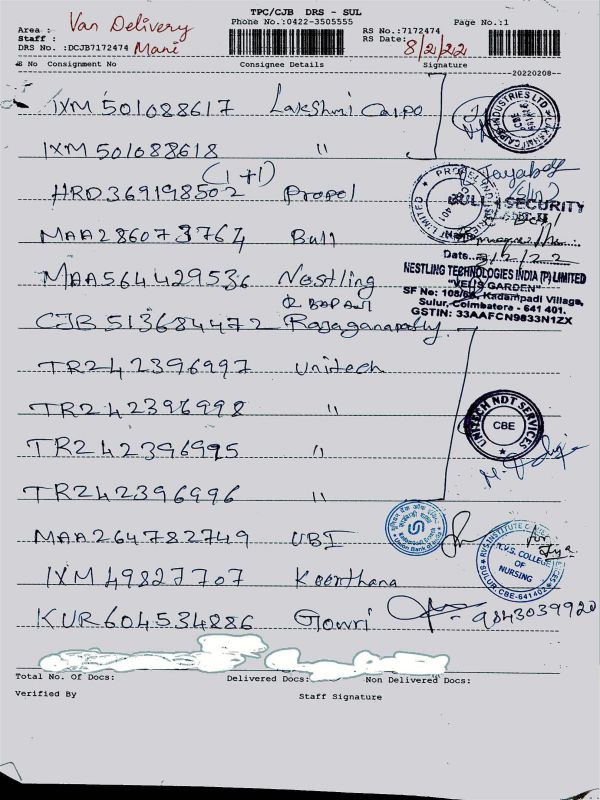 TPC/CJB DRS - SUL
Area : Van Delivery
Phone No.:0422-3505555
Page No.:1
Staff : Mani
RS No.:7172474
DRS No. :DCJB7172474
RS Date: 8/2/22
S No Consignment No Consignee Details Signature
20220208
IXM 501088617 Lakshmi Caipo
IXM 501088618 "
(1+1)
HRD369198502 Propel
MAA286073764 Bull
MAA564429536 Nestling
CJB 513684472 Rajaganapathy
TR242396997 Unitech
TR242396998 "
TR242396995 "
TR242396996 "
MAA264782749 UBI
IXM 49827707 Keerthana
KUR604534886 Gowri 9843039920
BULL SECURITY
Date
NESTLING TECHNOLOGIES INDIA (P) LIMITED
"VELIS GARDEN"
Kadampadi Village,
Sulur, Coimbatore - 641 401.
GSTIN: 33AAFCN9833N1ZX
UNITECH NDT SERVICES
CBE
Union Bank of India
R.V.S. COLLEGE
OF
NURSING
SULUR, CBE-641402
Total No. Of Docs: Delivered Docs: Non Delivered Docs:
Verified By Staff Signature